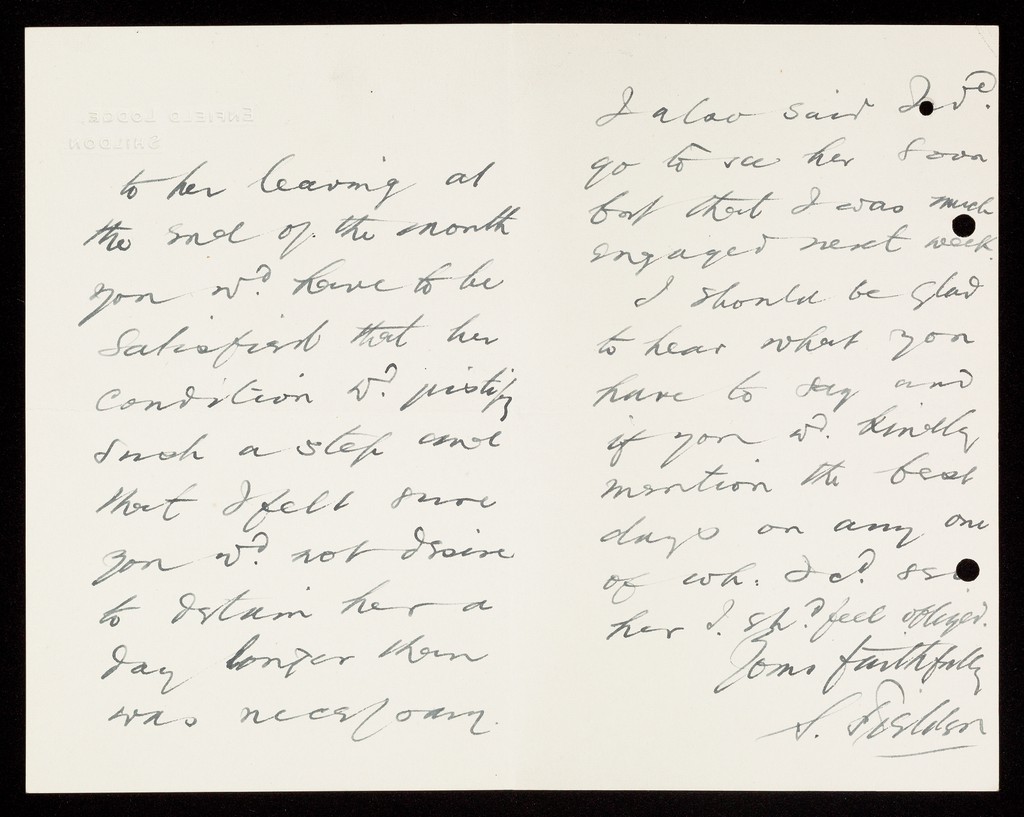 ENFIELD LODGE,
SHILDON.
to her leaving at
the end of the month
you wd. have to be
satisfied that her
condition wd. justify
such a step and
that I felt sure
you wd. not desire
to detain her a
day longer than
was necessary.
I also said I wd.
go to see her soon
but that I was much
engaged next week.
I should be glad
to hear what you
have to say and
if you wd. kindly
mention the best
days on any one
of wh: I cd. see
her I shd. feel obliged.
Yours faithfully
S. Fielden